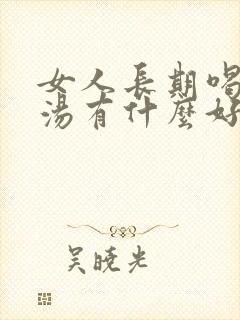 女人長期喝
湯有什麼好
吴晓光